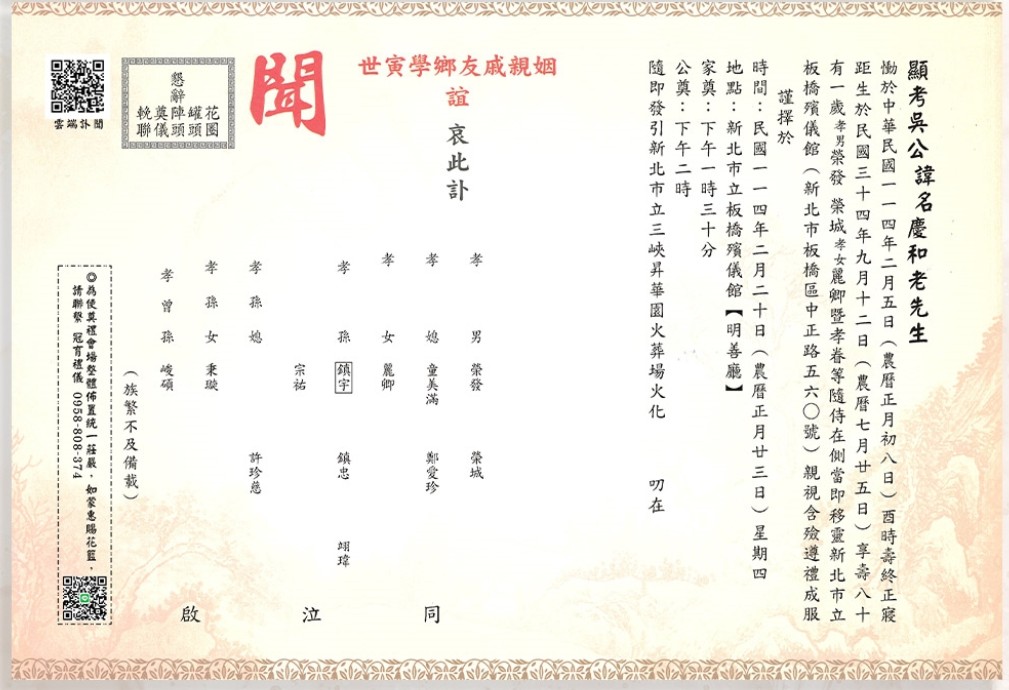 顯考吳公諱名慶和老先生
慟於中華民國一一四年二月五日（農曆正月初八日）酉時壽終正寢
距生於民國三十四年九月十二日（農曆七月廿五日）享壽八十
有一歲孝男榮發 榮城孝女麗卿暨孝眷等隨侍在側當即移靈新北市立
板橋殯儀館（新北市板橋區中正路五六〇號）親視含殮遵禮成服
謹擇於
時間：民國一一四年二月二十日（農曆正月廿三日）星期四
地點：新北市立板橋殯儀館【明善廳】
家奠：下午一時三十分
公奠：下午二時
隨即發引新北市立三峽昇華園火葬場火化 叨在
姻親戚友鄉學寅世
誼 哀此訃
聞
孝男 榮發 榮城
孝媳 童美滿 鄭愛珍
孝女 麗卿
孝孫 鎮宇 鎮忠 翊瑋
宗祐
孝孫媳 許珍慈
孝孫女 秉璇
孝曾孫 峻碩
（族繁不及備載）
同泣啟
懇辭
花圈
罐頭
陣頭
奠儀
輓聯
雲端訃聞
◎為使奠禮會場整體佈置統一莊嚴，如蒙惠賜花籃，
請聯繫 冠育禮儀 0958-808-374